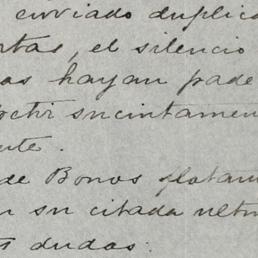 enviado duplica
rtas, el silencio
as hayan pade
ctir sucintamen
nte.
de Bonos flotan
n su citada ultim
s dudas: